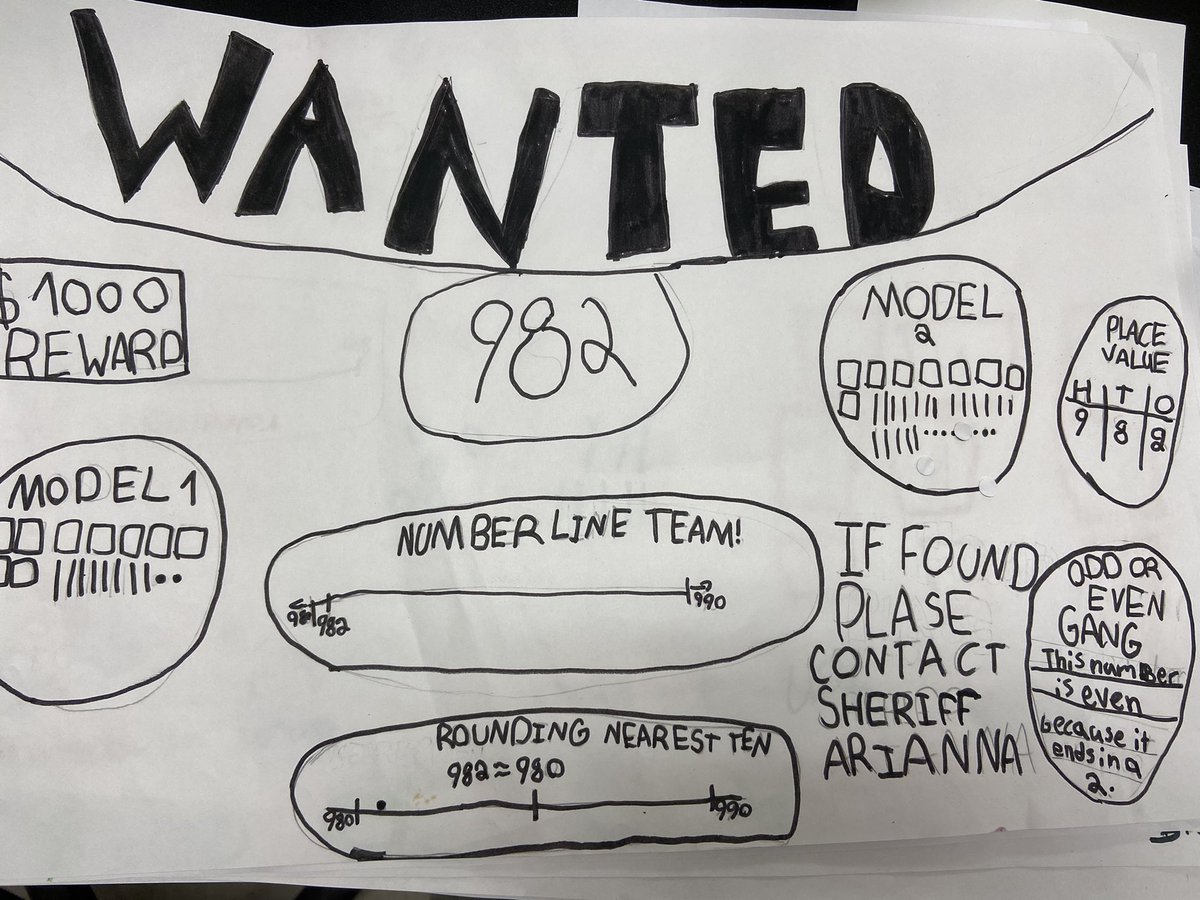 WANTED
$1000
REWARD
982
MODEL
2
PLACE
VALUE
H T O
9 8 2
MODEL 1
NUMBER LINE TEAM!
981 982 990
IF FOUND
PLASE
CONTACT
SHERIFF
ARIANNA
ODD OR
EVEN
GANG
This number
is even
because it
ends in a
2.
ROUNDING NEAREST TEN
982≈980
980 990